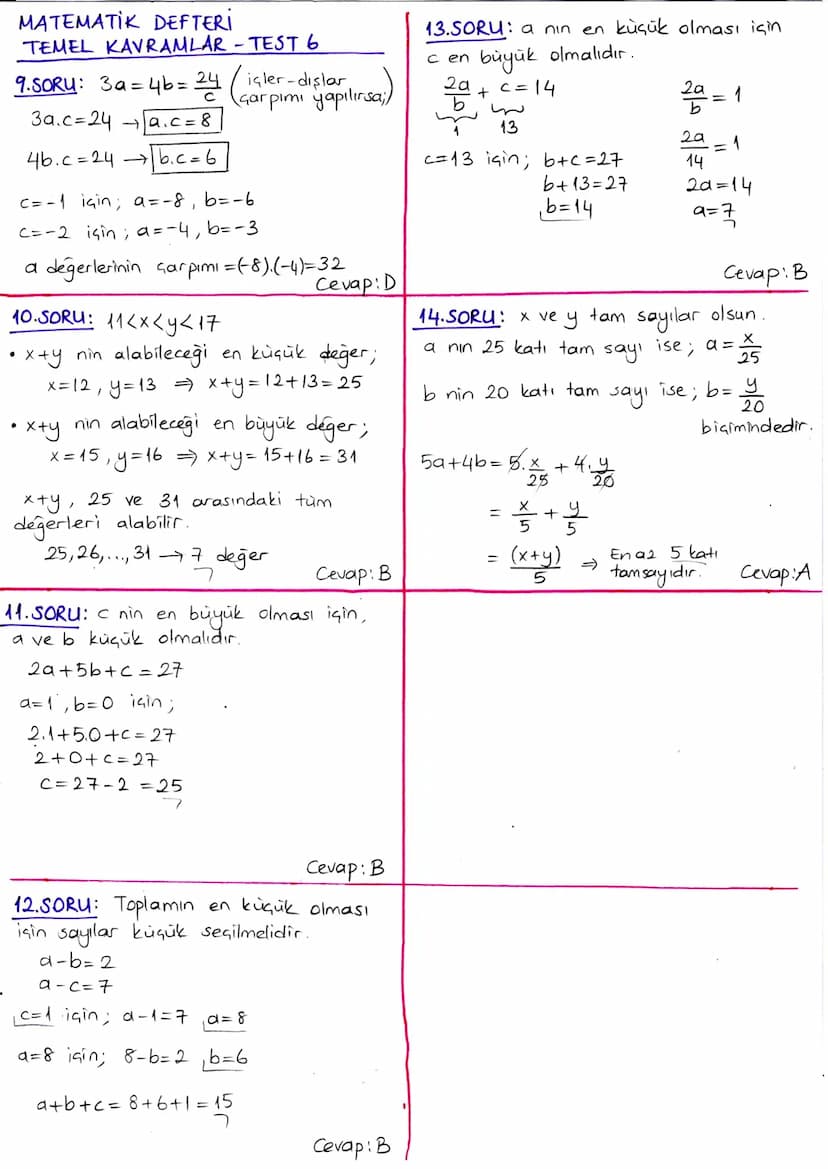 MATEMATİK DEFTERİ
TEMEL KAVRAMLAR - TEST 6
9.SORU: 3a = 4b = 24/c (içler-dışlar çarpımı yapılırsa;)
3a.c = 24 → a.c = 8
4b.c = 24 → b.c = 6
c = -1 için; a = -8, b = -6
c = -2 için; a = -4, b = -3
a değerlerinin çarpımı = (-8).(-4) = 32
Cevap: D
10.SORU: 11 < x < y < 17
• x+y nin alabileceği en küçük değer;
x = 12, y = 13 ⇒ x+y = 12+13 = 25
• x+y nin alabileceği en büyük değer;
x = 15, y = 16 ⇒ x+y = 15+16 = 31
x+y, 25 ve 31 arasındaki tüm
değerleri alabilir.
25, 26, ..., 31 → 7 değer
Cevap: B
11.SORU: c nin en büyük olması için,
a ve b küçük olmalıdır.
2a + 5b + c = 27
a = 1, b = 0 için;
2.1 + 5.0 + c = 27
2 + 0 + c = 27
c = 27 - 2 = 25
Cevap: B
12.SORU: Toplamın en küçük olması
için sayılar küçük seçilmelidir.
a - b = 2
a - c = 7
c = 1 için; a - 1 = 7 a = 8
a = 8 için; 8 - b = 2 b = 6
a + b + c = 8 + 6 + 1 = 15
Cevap: B
13.SORU: a nın en küçük olması için
c en büyük olmalıdır.
2a/b + c = 14
1 13
c = 13 için; b + c = 27
b + 13 = 27
b = 14
2a/b = 1
2a/14 = 1
2a = 14
a = 7
Cevap: B
14.SORU: x ve y tam sayılar olsun.
a nın 25 katı tam sayı ise; a = x/25
b nin 20 katı tam sayı ise; b = y/20
biçimindedir.
5a + 4b = 5.x/25 + 4.y/20
= x/5 + y/5
= (x+y)/5 ⇒ En az 5 katı
tamsayıdır.
Cevap: A